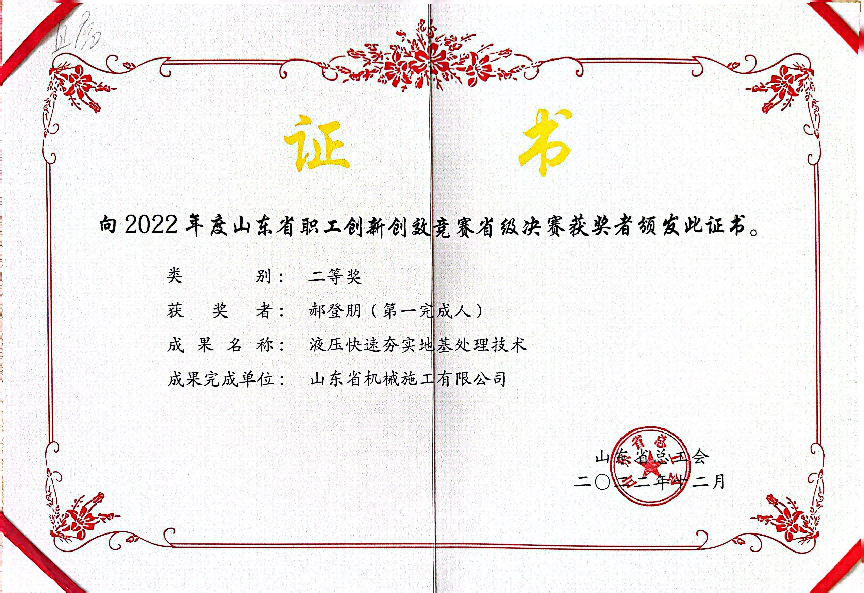 证 书
向2022年度山东省职工创新创效竞赛省级决赛获奖者颁发此证书。
类 别： 二等奖
获 奖 者： 郝登朋（第一完成人）
成 果 名 称： 液压快速夯实地基处理技术
成果完成单位： 山东省机械施工有限公司
山东省总工会
二〇二二年十二月